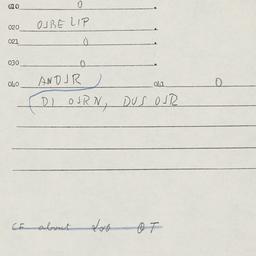 010 0
020 OSRE LIP
021 0
030 0
040 ANDSR 041 0
DI OSRN, DUS OSR
CF about